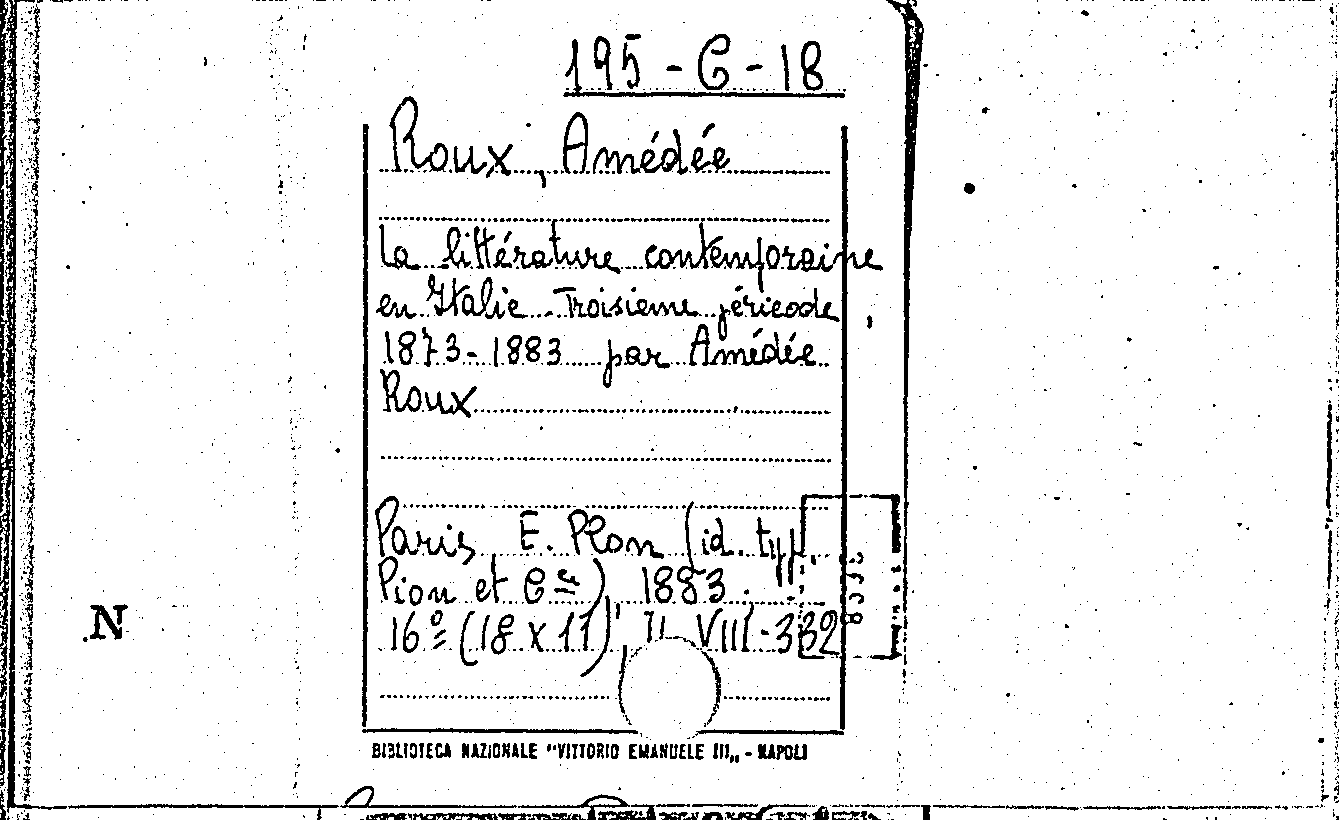 195-C-18
Roux, Amédée
La littérature contemporaine
en Italie. Troisieme période,
1873-1883 par Amédée
Roux
Paris, E. Plon (id. typ.
Plon et Cie), 1883.
16º (18 x 11), VIII-332
N
BIBLIOTECA NAZIONALE "VITTORIO EMANUELE III„ - NAPOLI